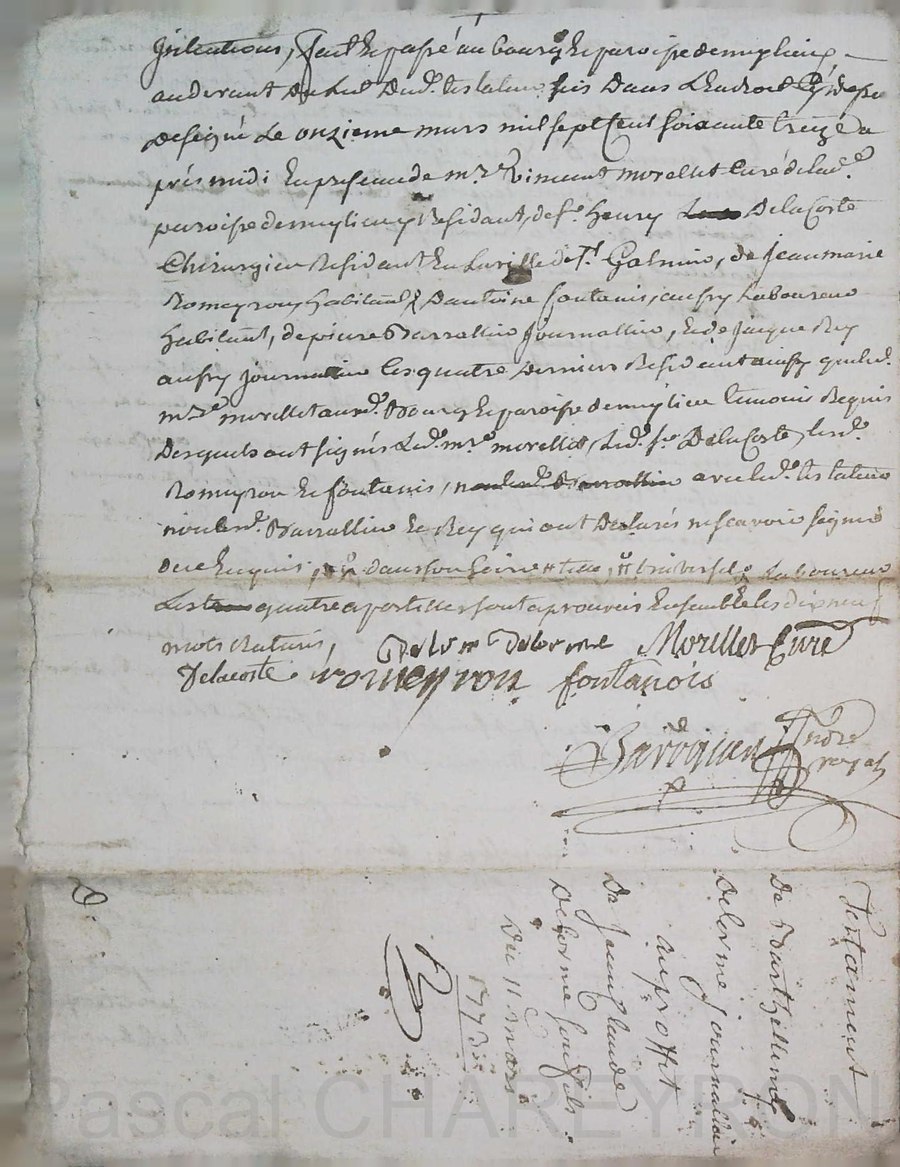 intentions, fait et passé au bourg et paroisse de mylieu,
au devant du lit dud. testateur sis dans
designé le onzieme mars mil sept cent soixante treize a
prés midi en presence de mre vincent morellet curé de lad.
paroisse de mylieu y Residant, de sr. henry Delacoste
Chirurgien Residant en la ville de st. Galmier, de jean marie
Romeyron, habitant, d'antoine fontanis, aussy Laboureur
habitant, de pierre Barrallier journallier, et de jacque Rey
aussy journallier les quatre derniers Residents ainsy que led.
mre morellet aud. Bourg et paroisse de mylieu temoins Requis
desquels ont signés led. mre. morellet, led. sr. Delacoste, lesd.
Romeyron et fontanis, avec led. testateur
non lesd. Barrallier et Rey qui ont declarés ne scavoir signer
de ce enquis, Laboureur
Les quatre apostilles sont aprouvés ensemble les dix neuf
mots raturés,
Delorme Morellet Curé
Delacoste romeyron fontanois
royal
Testament
De Barthellemy
Delorme journallier
au proffit
De jean Claude
Delorme son fils
Du 11 mars
1773
R
Pascal CHAREYRON